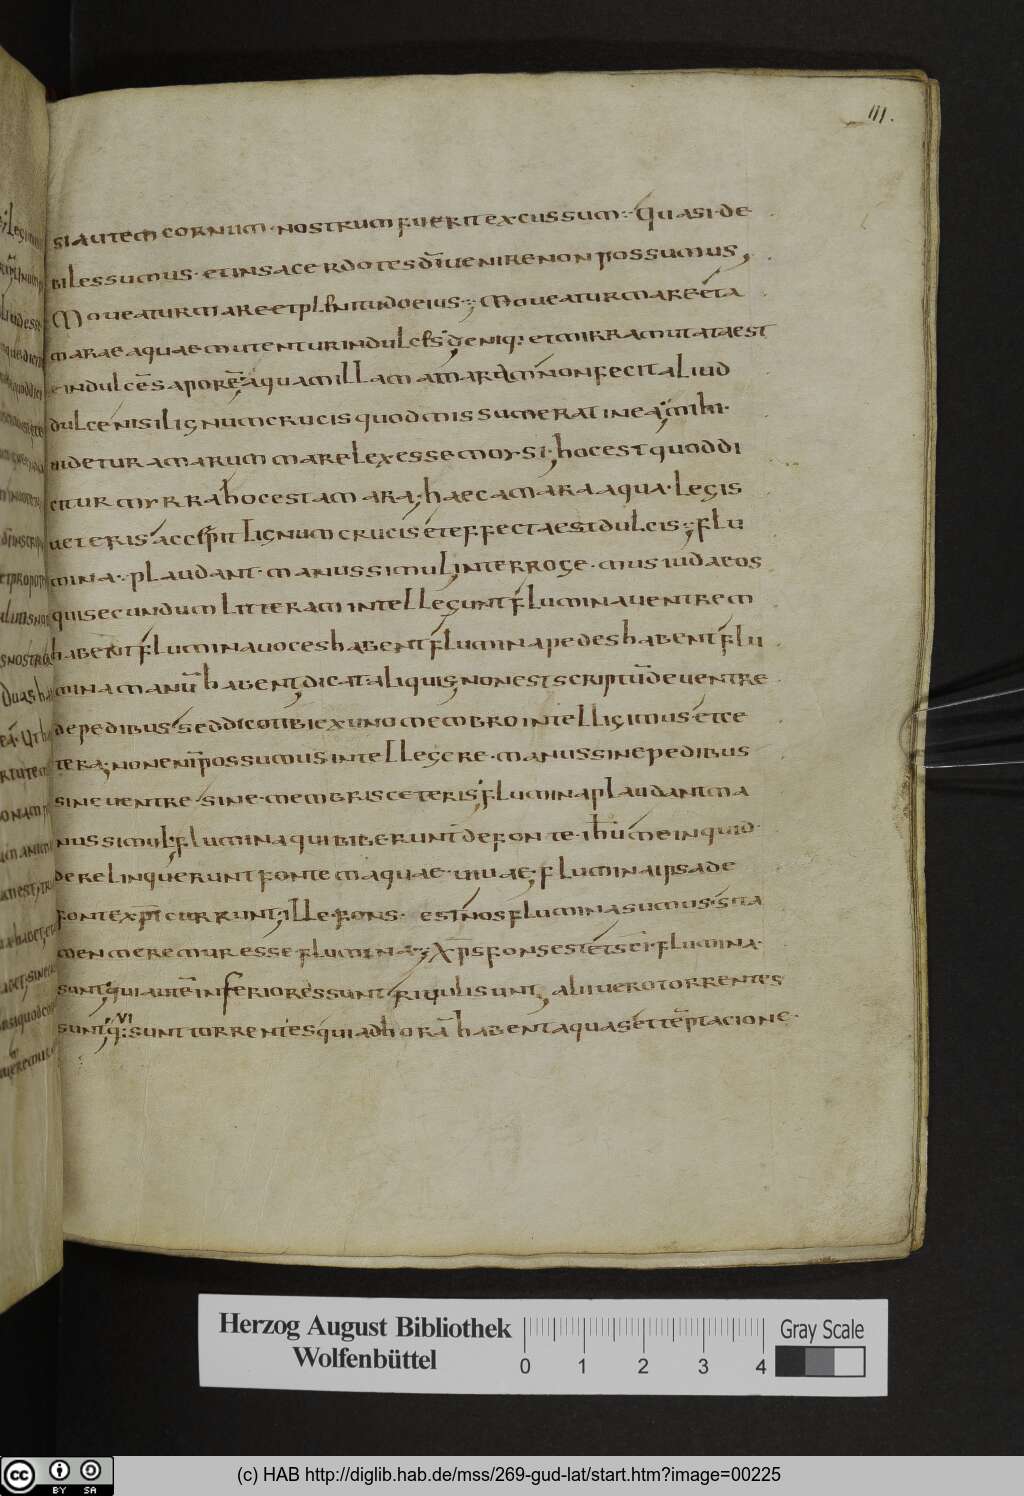 111.
si autem cornum · nostrum fuerit excussum · quasi · de
biles sumus · et in sacerdotes dī uenire non possumus,
Moueatur mare et plenitudo eius ; Moueatur mare et a
marae aquae mutentur in dulces deniq; et mirra mutata est
in dulcē saporē aquam illam amarā non fecit aliud
dulce nisi lignum crucis quod missum erat in ea; mihi ·
uidetur amarum mare lex esse moysi, hoc est quod di
citur myrra hoc est amara; haec amara aqua · legis
ueteris accepit lignum crucis et effecta est dulcis ; flu
mina · plaudant · manus simul, interroge · mus iudaeos
qui secundum litteram intellegunt flumina uentrem
habent flumina uoces habent flumina pedes habent flu
mina manū habent, dicat aliquis, non est scriptū de uentre
de pedibus sed dico tibi ex uno membro intelligimus et ce
tera; non enī possumus intellegere · manus sine pedibus
sine uentre · sine · membris ceteris; flumina plaudant ma
nus simul; flumina qui biberunt de fonte · ihū me inquid
derelinquerunt fontem aquae · uiuae; flumina ipsa de
fonte xpī currunt; ille · fons · est nos flumina sumus · si ta
men meremur esse · flumina ; Xps fons est et sci · flumina ·
sunt; qui autē inferiores sunt riuuli sunt, alii uero torrentes
sunt; q; sunt torrentes qui ad horā habent aquas et tēptacione ·
Herzog August Bibliothek
Wolfenbüttel
0 1 2 3 4
Gray Scale
cc BY SA
(c) HAB http://diglib.hab.de/mss/269-gud-lat/start.htm?image=00225